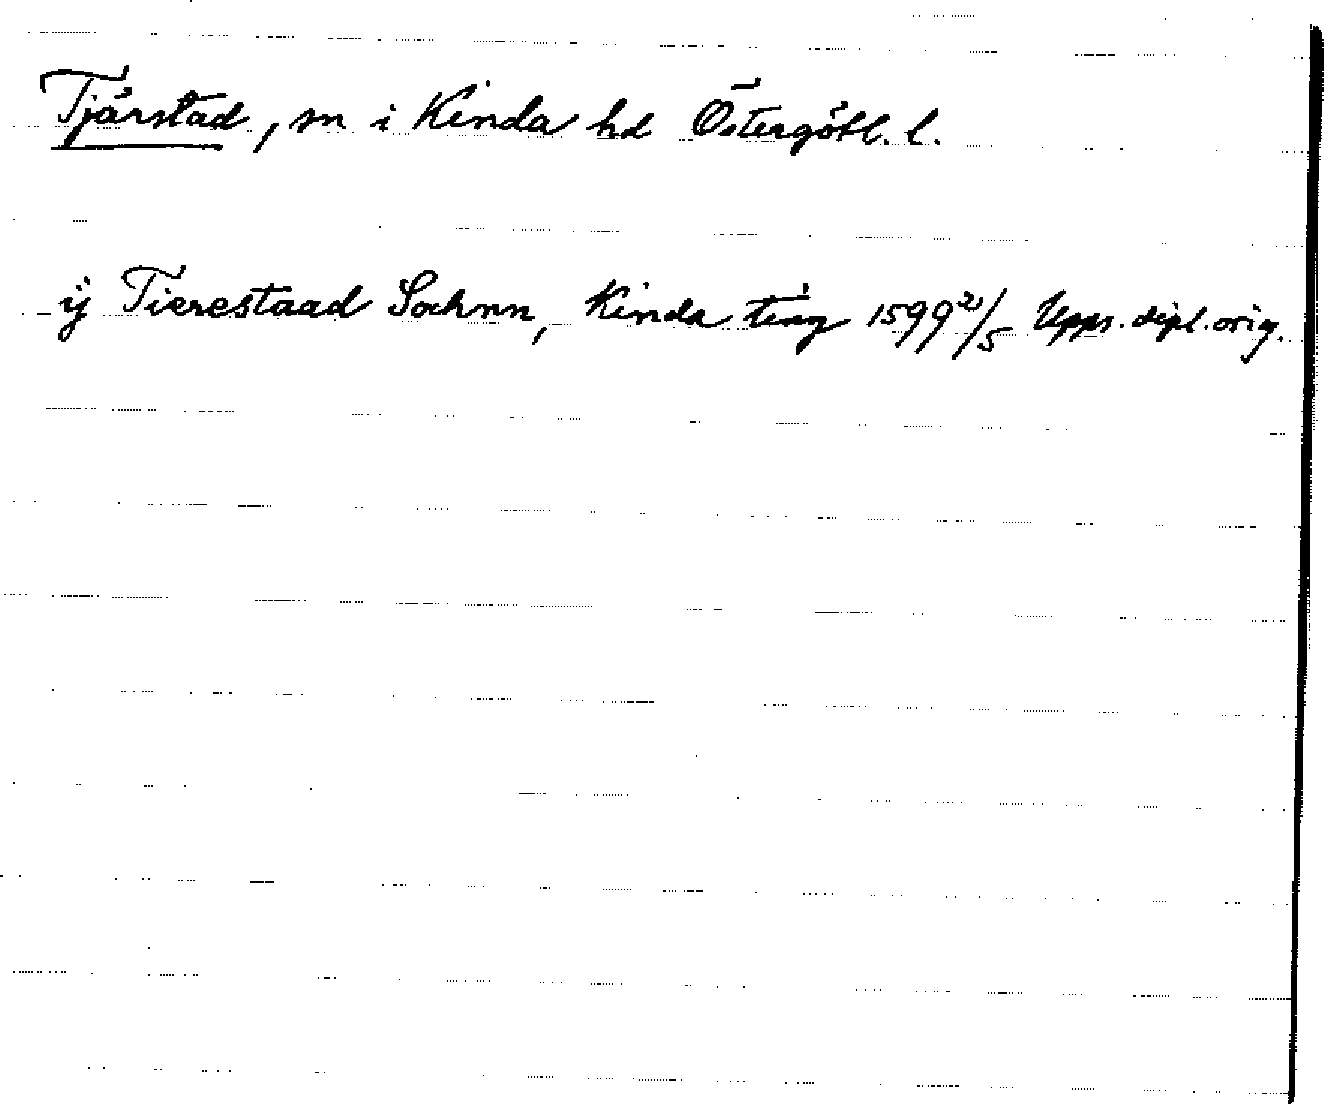 Tjärstad, sn i Kinda hd Östergötl. l.
ÿ Tierestaad Sochnn, Kinda ting 1599 2/5 Upps. dipl. orig.